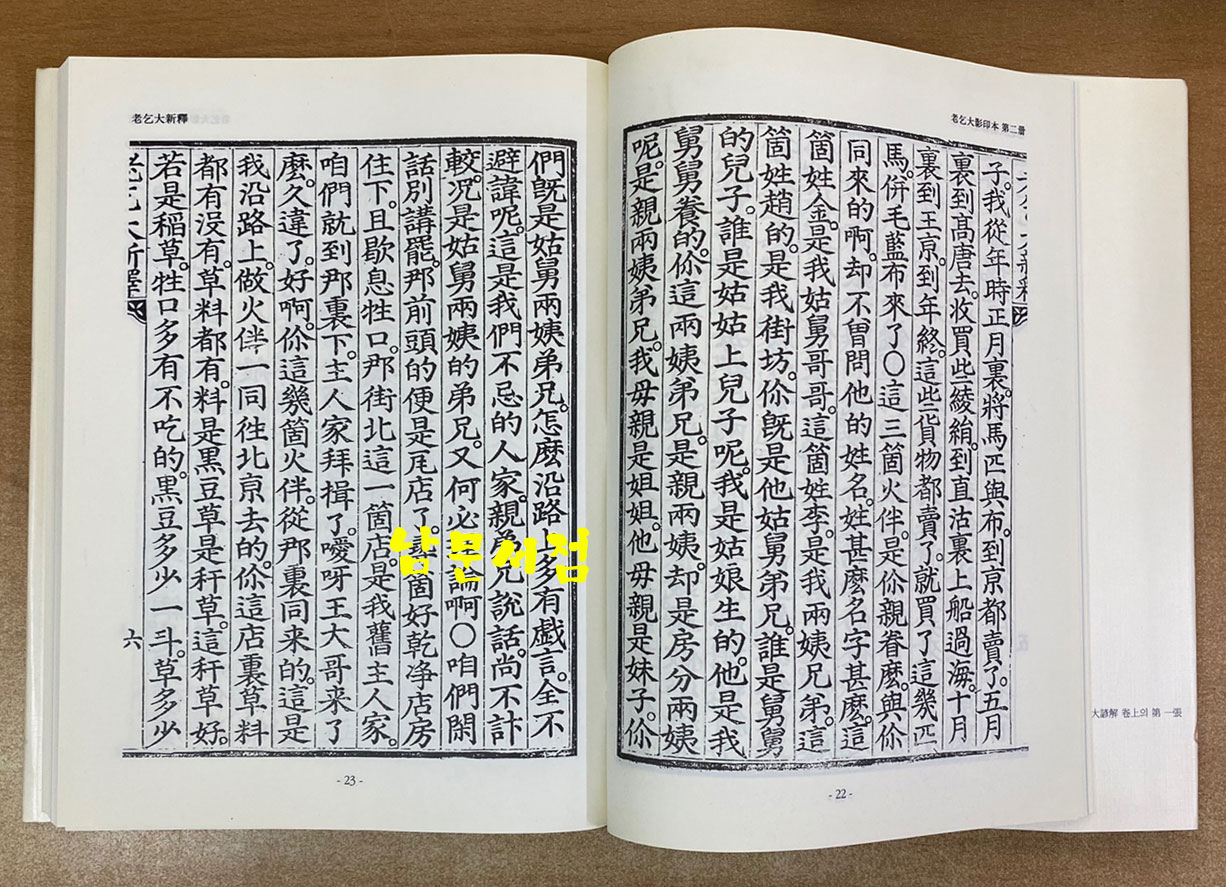 老乞大影印本 第二册
子。我從年時正月裏。將馬匹與布。到京都賣了。五月
裏到高唐去。收買些綾絹。到直沽裏上船過海。十月
裏到王京。到年終。這些貨物都賣了。就買了這幾匹
馬。併毛藍布來了〇這三箇火伴。是伱親眷麽。與伱
同來的啊。却不曾問他的姓名。姓甚麽名字甚麽。這
箇姓金。是我姑舅哥哥。這箇姓李。是我兩姨兄弟。這
箇姓趙的。是我街坊。伱旣是他姑舅弟兄。誰是舅舅
的兒子。誰是姑姑上兒子呢。我是姑娘生的。他是我
舅舅養的。伱這兩姨弟兄。是親兩姨。却是房分兩姨
呢。是親兩姨弟兄。我母親是姐姐。他母親是妹子。伱
- 22 -
大諺解 卷上의 第一張
老乞大新釋
們旣是姑舅兩姨弟兄。怎麽沿路上多有戲言。全不
避諱呢。這是我們不忌的人家。親弟兄說話。尚不計
較。况是姑舅兩姨的弟兄。又何必論啊〇咱們閑
話別講罷。那前頭的便是瓦店了。尋箇好乾净店房
住下。且歇息牲口。那街北這一箇店。是我舊主人家。
咱們就到那裏下。主人家拜揖了。噯呀王大哥來了
麽。久違了。好啊。伱這幾箇火伴。從那裏同来的。這是
我沿路上。做火伴一同往北京去的。伱這店裏草料
都有沒有。草料都有。料是黑豆草是秆草。這秆草好。
若是稻草。牲口多有不吃的。黑豆多少一斗。草多少
老乞大新釋 六
- 23 -
남문서점